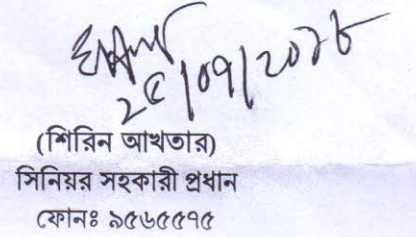 ২৫/০৭/২০১৮
(শিরিন আখতার)
সিনিয়র সহকারী প্রধান
ফোনঃ ৯৫৬৫৫৭৫